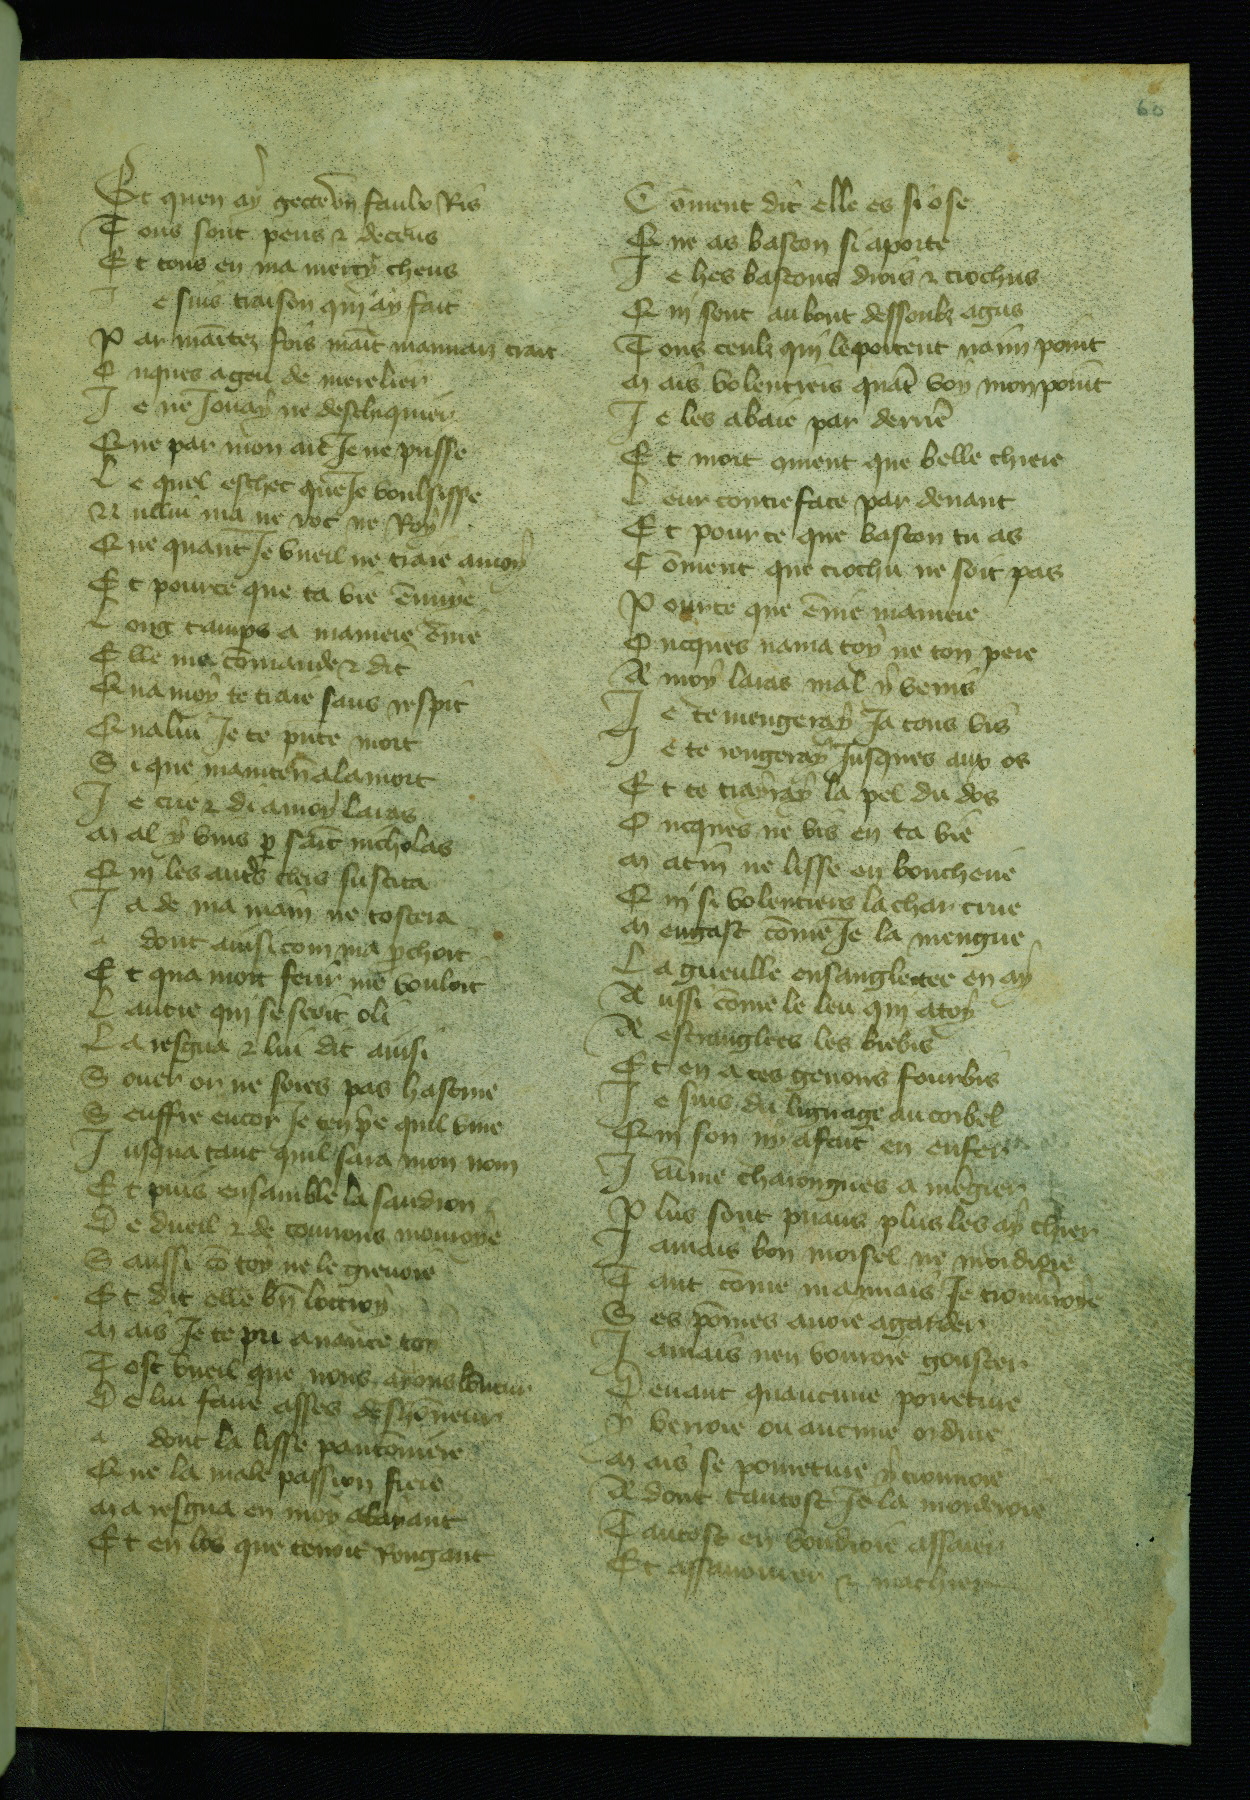 60
Et quen aÿ gecte vn̄ faulx Ris
Tous sont peus ⁊ deceus
Et tous en ma mercy cheus
Ie suis traison qui aÿ fait
Par māītez fois māīt mauuaiz trait
Onques a geu de merelier
Ie ne Iouaÿ ne deschequier
Que par mon art Ie ne pusse
Le quel eschec que Ie voulsisse
Nulluı̄ ma ne roc ne Roÿ
Que quant Ie vueil ne traie amoÿ
Et pource que ta vie ēnuye
Long tamps a ma mere ēuie
Elle me cōmande ⁊ dit
Qua moÿ te traie sans respit
Qualuı̄ Ie te pn̄te mort
Si que mainten̄ a la mort
Ie crie ⁊ di a moÿ laras
Mal ÿ vins p̱ saīt nicholas
Qui les autˢ clers suscita
Ia de ma main ne tostera
a dont ainsi com ma p̱choit
Et qua mort ferir me vouloit
Lautre qui se seoit oli
La resgua ⁊ lui dit ainsi
Souer or ne soies pas hastiue
Seuffre encor Ie ten p̄e quil viue
Iusqua tant quil sara mon nom
Et puis ensamble lasaudron
De dueil ⁊ de courous mouroÿe
Saussi cō toy ne le greuoie
Et dit elle bn̄ loctroÿ
Mais Ie te pri auance toÿ
Tost vueil que nous aions lōneur
De lui faire asses deshōneur
a dont la lisse pautōniere
Que la male passion fiere
Ma resgua en moy abayant
Et en los que tenoit Rongant
Cōment dit elle es si ose
Que as baston si aporte
Ie hes bastons drois ⁊ crochus
Qui sont au bout dessoubz agus
Tous ceulz qui le portent naim point
Mais volentiers quāt voy mon point
Ie les abaie par derriē
Et mort cōment que belle chiere
Leur contreface par deuant
Et pour ce que baston tu as
Cōment que crochu ne soit pas
Pource que ōme ma mere
Oncques nama toÿ ne ton pere
A moÿ laras mal ÿ venis
Ie te mengeraÿ Ia tous vis
Ie te rongeraÿ Iusques aux os
Et te trairaÿ la pel du dos
Oncques ne vis en ta vie
Matin ne lisse en boucherie
Qui si volentiers la char crue
Mengast cōme Ie la mengue
La gueulle ensanglentee en aÿ
Aussi cōme le leu qui a toÿ
A estranglees les brebis
Et en a ces genous fourbis
Ie suis du lignage au corbel
Qui son ny a fait en enfer
Iaime charongnes a mēgier
Plus sont puans plus les aÿ chier
Iamais bon morsel ne mordroie
Tant cōme mauuais Ie trouuroÿe
Ses pōmes auoie a garder
Iamais nen vourroie gouster
Deuant quaucune porreture
ÿ verroie ou aucune ordure
Mais se porreture ÿ trouuoie
Adont tantost Ie la morderoie
Tantost en voudroie assaier
Et assauourer ⁊ machier